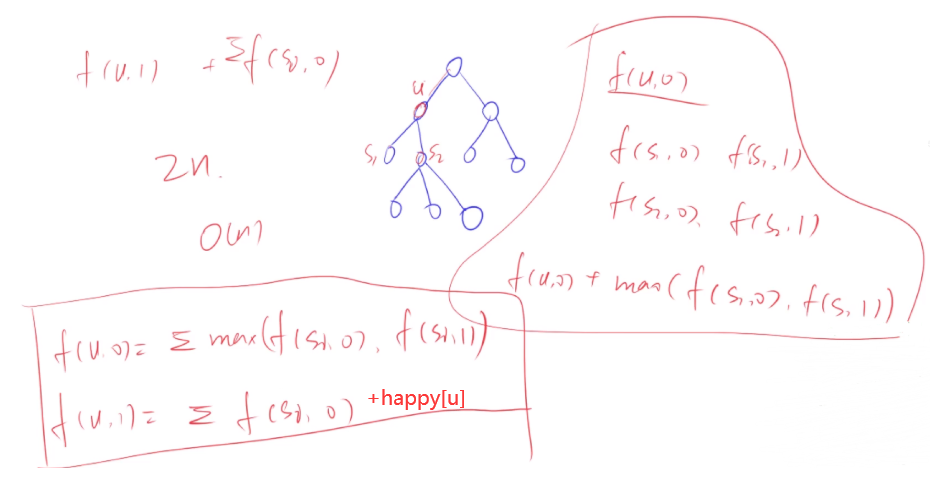 f(u,1) + Σf(si,0)
2n.
O(n)
u
s1
s2
f(u,0)
f(s1,0) f(s1,1)
f(s2,0) f(s2,1)
f(u,0) + max(f(si,0), f(si,1))
f(u,0) = Σ max(f(si,0), f(si,1))
f(u,1) = Σ f(si,0) +happy[u]